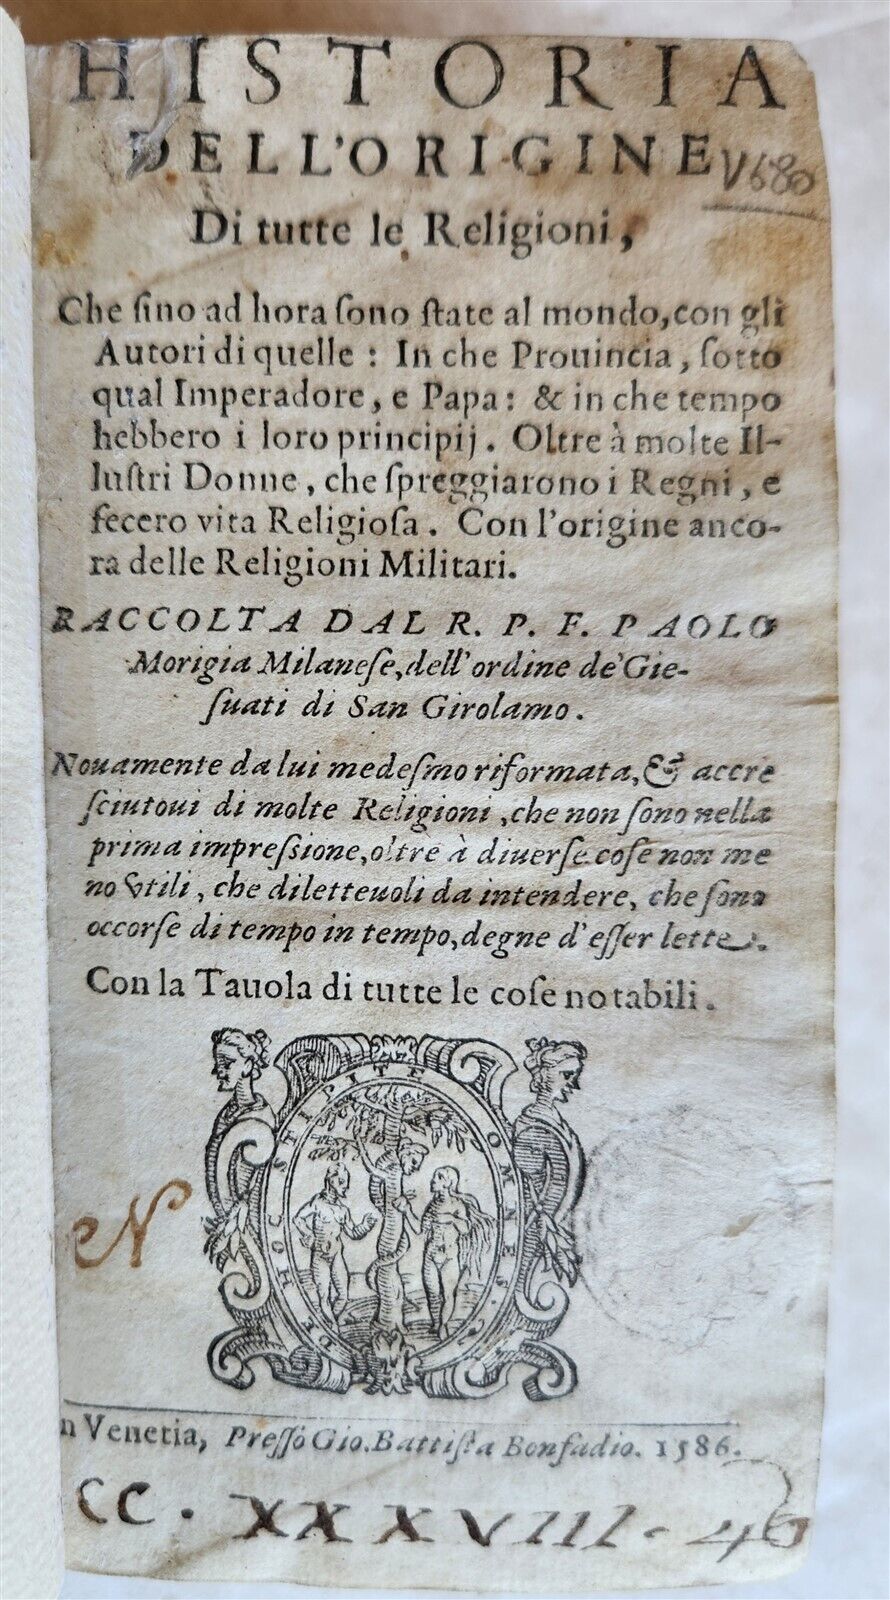 HISTORIA
DELL'ORIGINE
V680
Di tutte le Religioni,
Che ſino ad hora ſono ſtate al mondo, con gli
Autori di quelle: In che Prouincia, ſotto
qual Imperadore, e Papa: & in che tempo
hebbero i loro principij. Oltre à molte Il-
luſtri Donne, che ſpreggiarono i Regni, e
fecero vita Religioſa. Con l'origine anco-
ra delle Religioni Militari.
RACCOLTA DAL R. P. F. PAOLO
Morigia Milaneſe, dell'ordine de' Gie-
ſuati di San Girolamo.
Nouamente da lui medeſmo riformata, & accre
ſciutoui di molte Religioni, che non ſono nella
prima impreſſione, oltre à diuerſe coſe non me
no vtili, che diletteuoli da intendere, che ſono
occorſe di tempo in tempo, degne d'eſſer lette.
Con la Tauola di tutte le coſe notabili.
DE HOC STIPITE OMNES.
N
n Venetia, Preſſo Gio. Battiſta Bonfadio. 1586.
CC. XXXVIII. 46